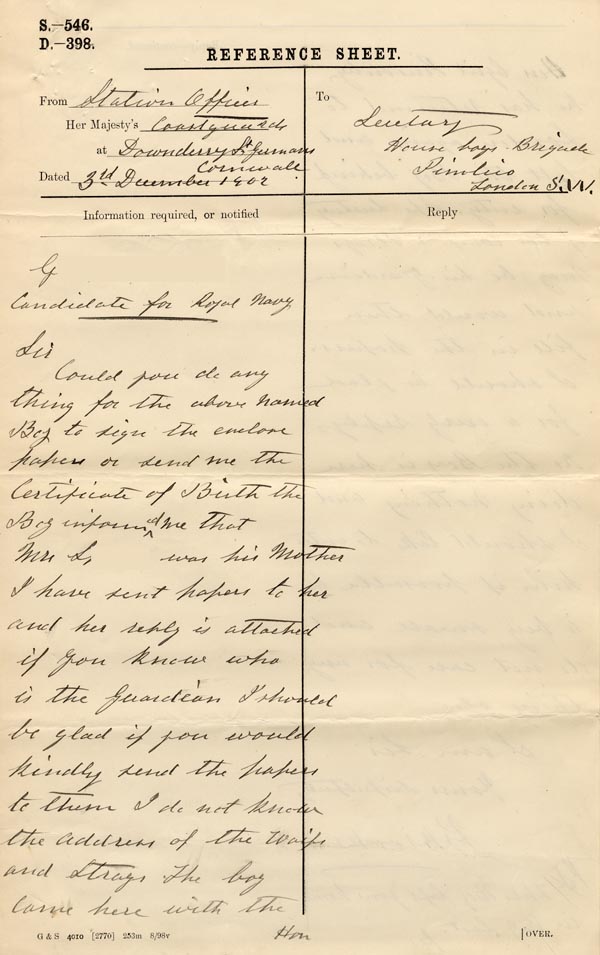 S.—546.
D.—398.
REFERENCE SHEET.
From Station Officer
Her Majesty's Coastguards
at Downderry St Germans
Cornwall
Dated 3rd December 1902
To
Secretary
House boys Brigade
Pimlico
London S.W.
Information required, or notified
Reply
G
Candidate for Royal Navy
Sir
Could you do any
thing for the above named
Boy to sign the enclose
papers or send me the
Certificate of Birth the
Boy informed me that
Mrs S, was his Mother
I have sent papers to her
and her reply is attached
if you know who
is the Guardian I should
be glad if you would
kindly send the papers
to them I do not know
the address of the Waifs
and Strays The boy
came here with the
Hon
G & S 4010 [2770] 253m 8/98v
[OVER.